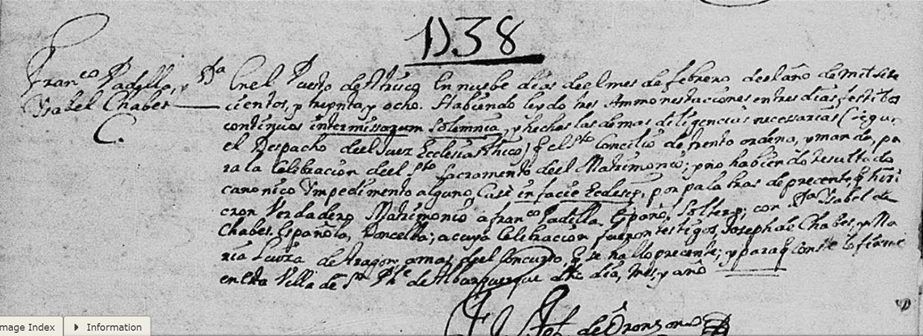 1738
Franco Padilla, y Da
Ysabel Chabes
C.
En el Pto de Atrisco En nuebe dias de el mes de febrero de el año de mil sete
cientos, y treynta, y ocho. Habiendo leydo tres Ammonestaciones en tres dias festibos
continuos intermissarum solemnia, y hechas las demas diligencias necessarias
el Despacho de el Juez Ecclesiastico; q el Sto Concilio de trento ordena, y manda, pa
ra la Celebracion de el Sto Sacramento de el Matrimonio; y no habiendo resultado
canonico Impedimento alguno, Casè in facie Eclesię, por palabras de precente, q hizi
eron Verdadero Matrimonio a Franco Padilla, Españo, Soltero; con Da Ysabel de
Chabes, Española, Doncella; a cuya Celebracion fueron testigos Joseph de Chabes, y Ma
ria Luiza de Aragon a mas de el Concurso, q se hallo precente; y para q conste lo firmè
en esta Villa de Sn Phe de Alburquerque dho dia, mes, y año
Image Index
Information